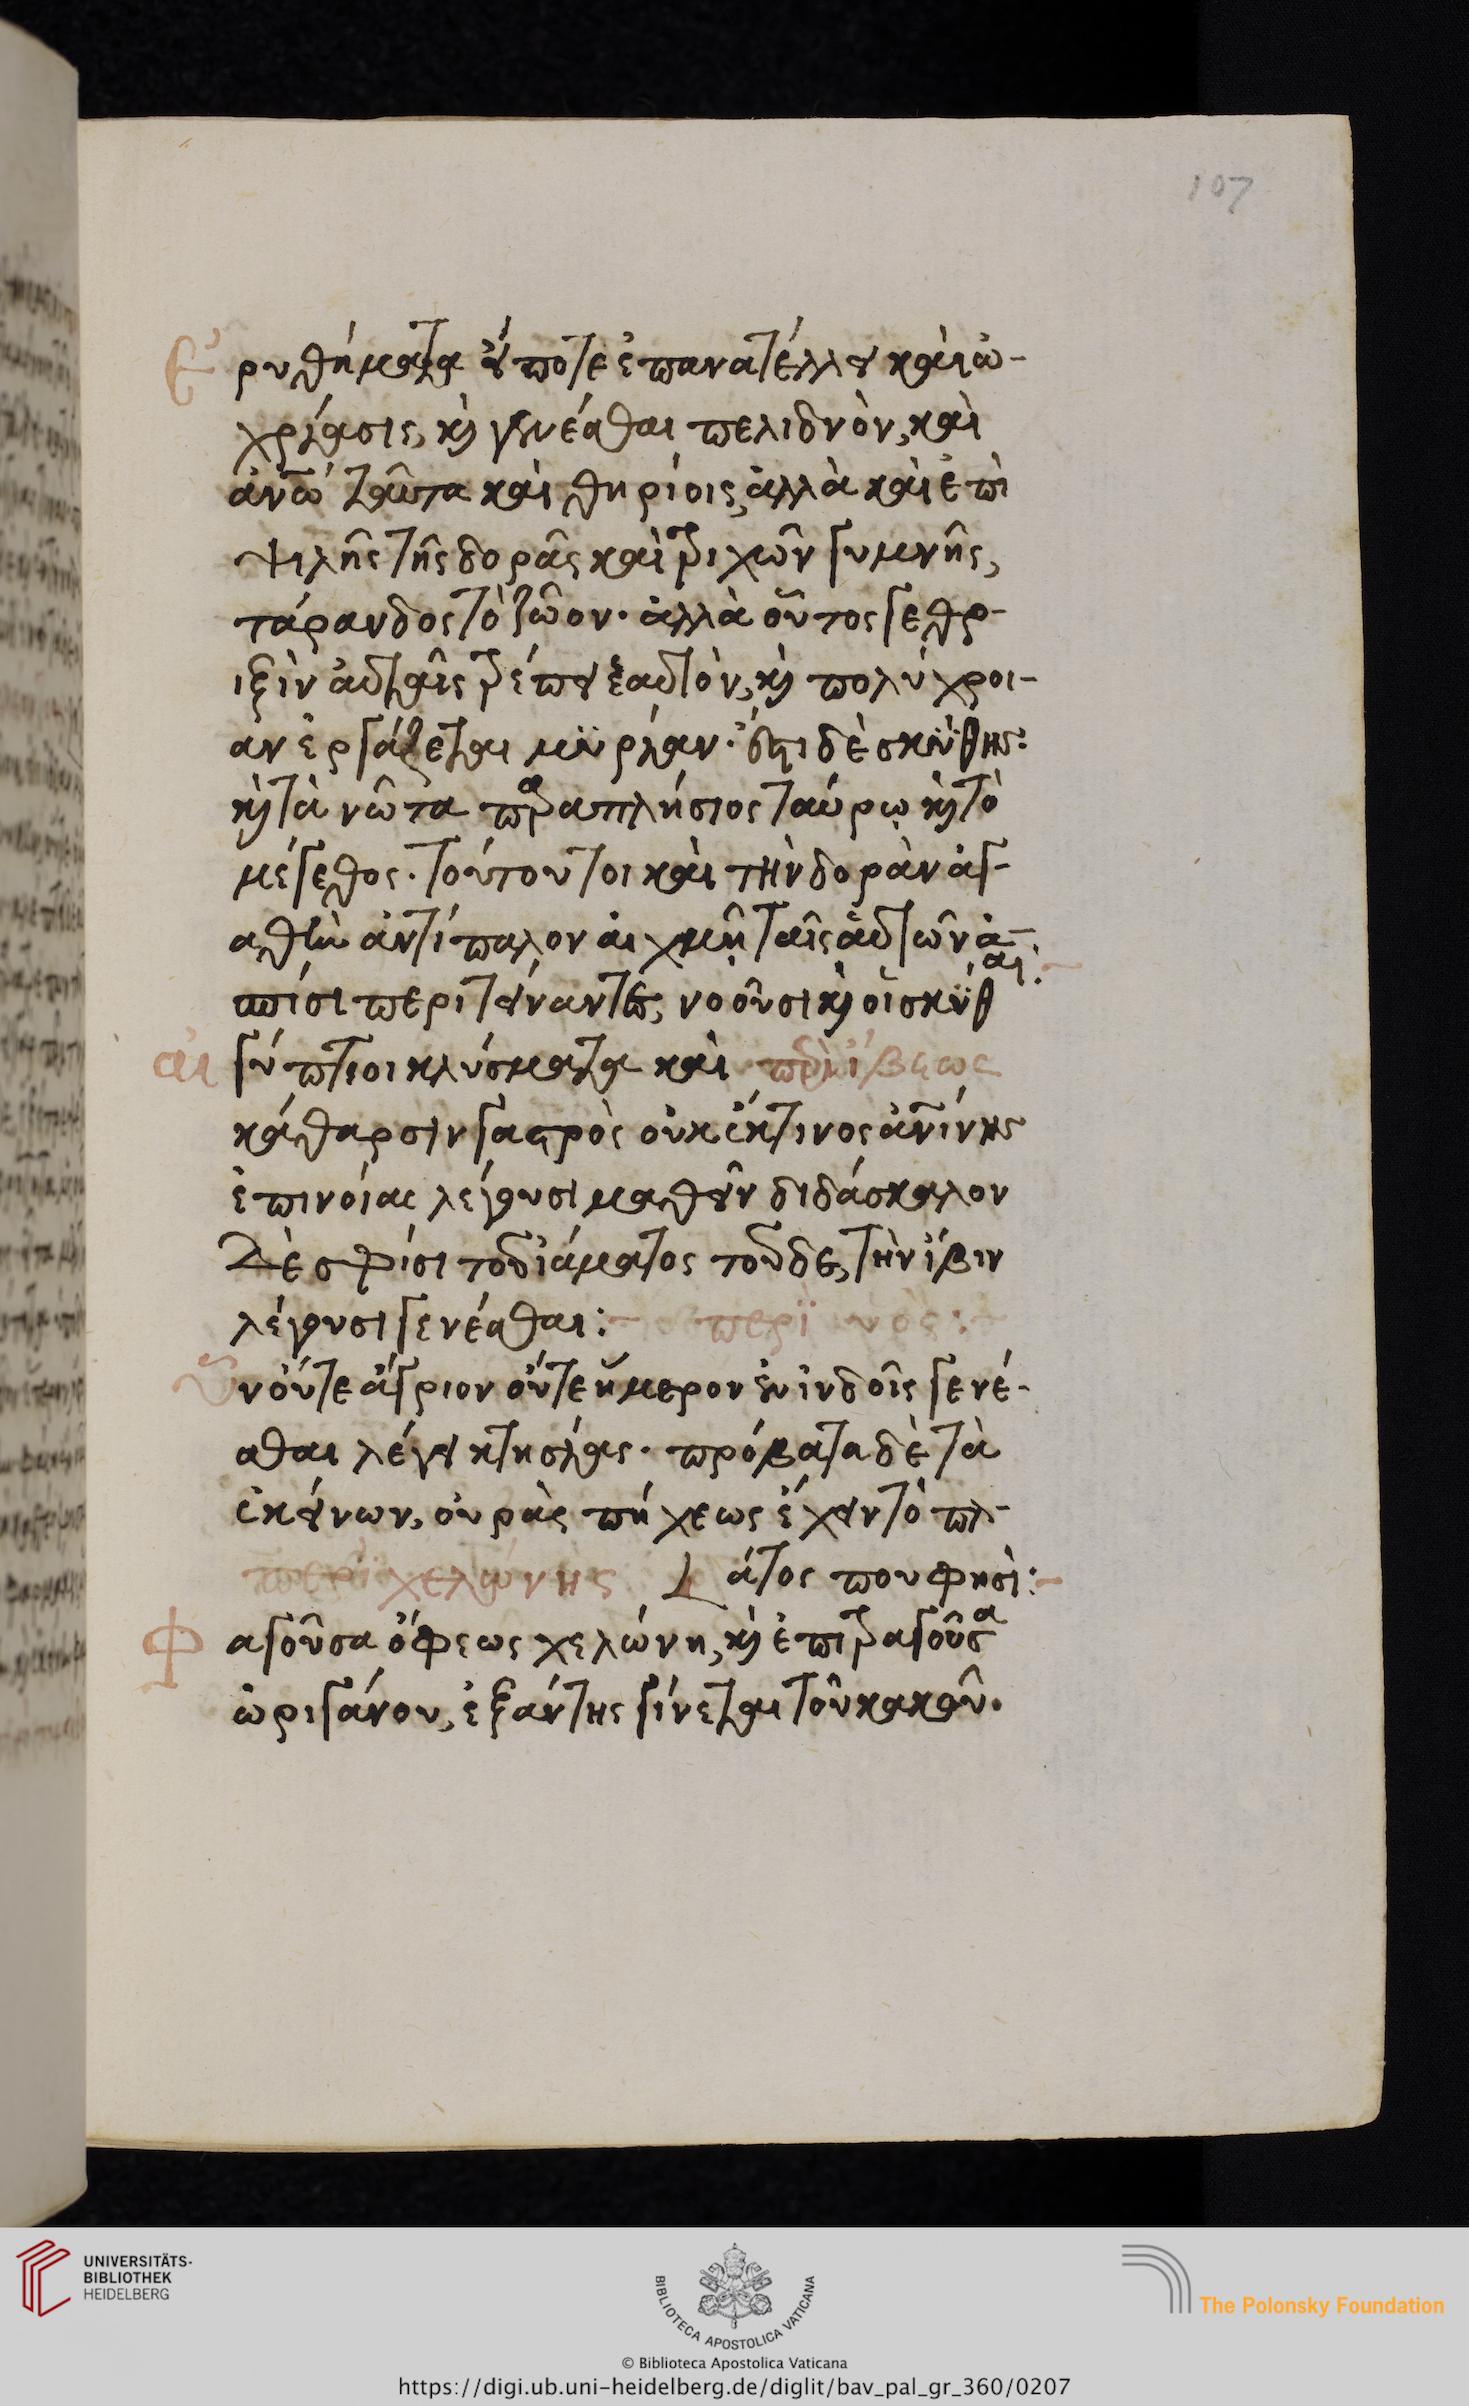 107
Ἐρυθήματα εἴ ποτε ἐπανατέλλει καὶ ὠ-
χρίασις, κὶ γενέσθαι πελιδνὸν, καὶ
ἀνῶ ταῦτα καὶ θηρίοις, ἀλλὰ καὶ ἐπὶ
ψιλῆς τῆς δορᾶς καὶ τριχῶν γυμνῆς,
τάρανδος τὸ ζῶον. ἀλλὰ οὗτος γε θρ-
ιξὶν αὐταῖς τρέπει ἑαυτὸν, κὶ πολύχροι-
αν ἐργάζεται μϋρίαν. ἔστι δὲ σκϋθης:
κὶ τὰ νῶτα παραπλήσιος ταύρῳ κὶ τὸ
μέγεθος. τούτου τοι καὶ τὴν δορὰν ἀγ-
αθὴν ἀντίπαλον αἰχμῇ ταῖς ἑαυτῶν ἀ-
σπίσι περιτείναντες, νοοῦσι κὶ οἱ σκϋθαι:
αἰγύπτιοι κλύσματα καὶ περὶ ἴβεως
κάθαρσιν γαστρὸς οὐκ ἔκ τινος ἀνίνης
ἐπινοίας λέγουσι μαθεῖν διδάσκαλον
δὲ σφίσι τοῦ ἰάματος τοῦδε, τὴν ἴβιν
λέγουσι γενέσθαι: περϊ υὸς:
ὗν οὔτε ἄγριον οὔτε ἥμερον ἐν ἰνδοῖς γενέ-
σθαι λέγει κτησίας. πρόβατα δὲ τὰ
ἐκείνων, οὐρὰς πήχεως ἔχειν τὸ πλ-
περὶ χελώνης άτος που φησὶ:
Φαγοῦσα ὄφεως χελώνη, κὶ ἐπιτραγοῦσα
ὠριγάνου, ἐξάντης γίνεται τοῦ κακοῦ.
UNIVERSITÄTS-
BIBLIOTHEK
HEIDELBERG
BIBLIOTECA APOSTOLICA VATICANA
The Polonsky Foundation
© Biblioteca Apostolica Vaticana
https://digi.ub.uni-heidelberg.de/diglit/bav_pal_gr_360/0207